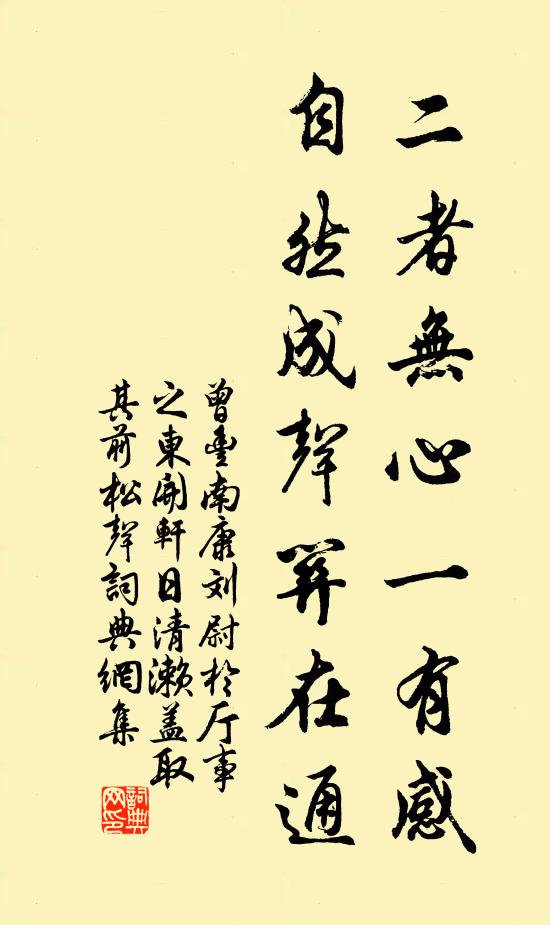 二者無心一有感
自然成聲算在通
曾豊南康刘尉於厅事
之東開軒日清瀨蓋取
其前松聲詞典網集
詞典网印